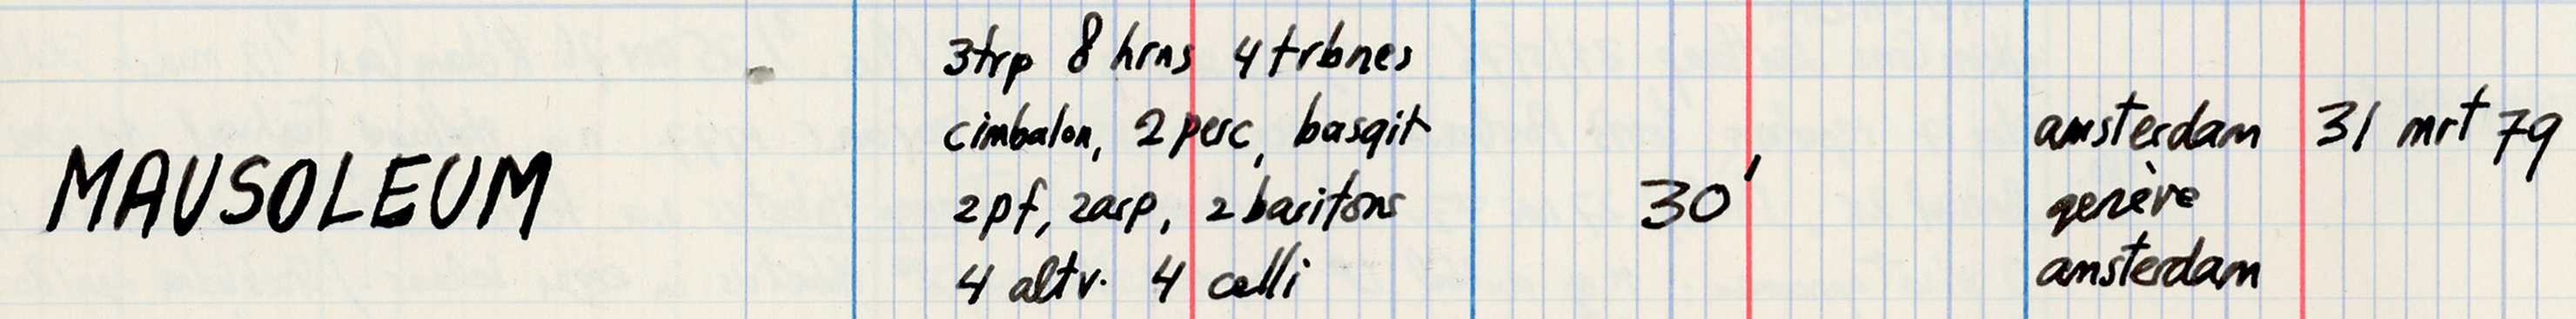 MAUSOLEUM
3trp 8 hrns 4 trbnes
cimbalon, 2 perc, basgit
2pf, 2arp, 2 baritons
4 altv. 4 celli
30'
amsterdam 31 mrt 79
genève
amsterdam